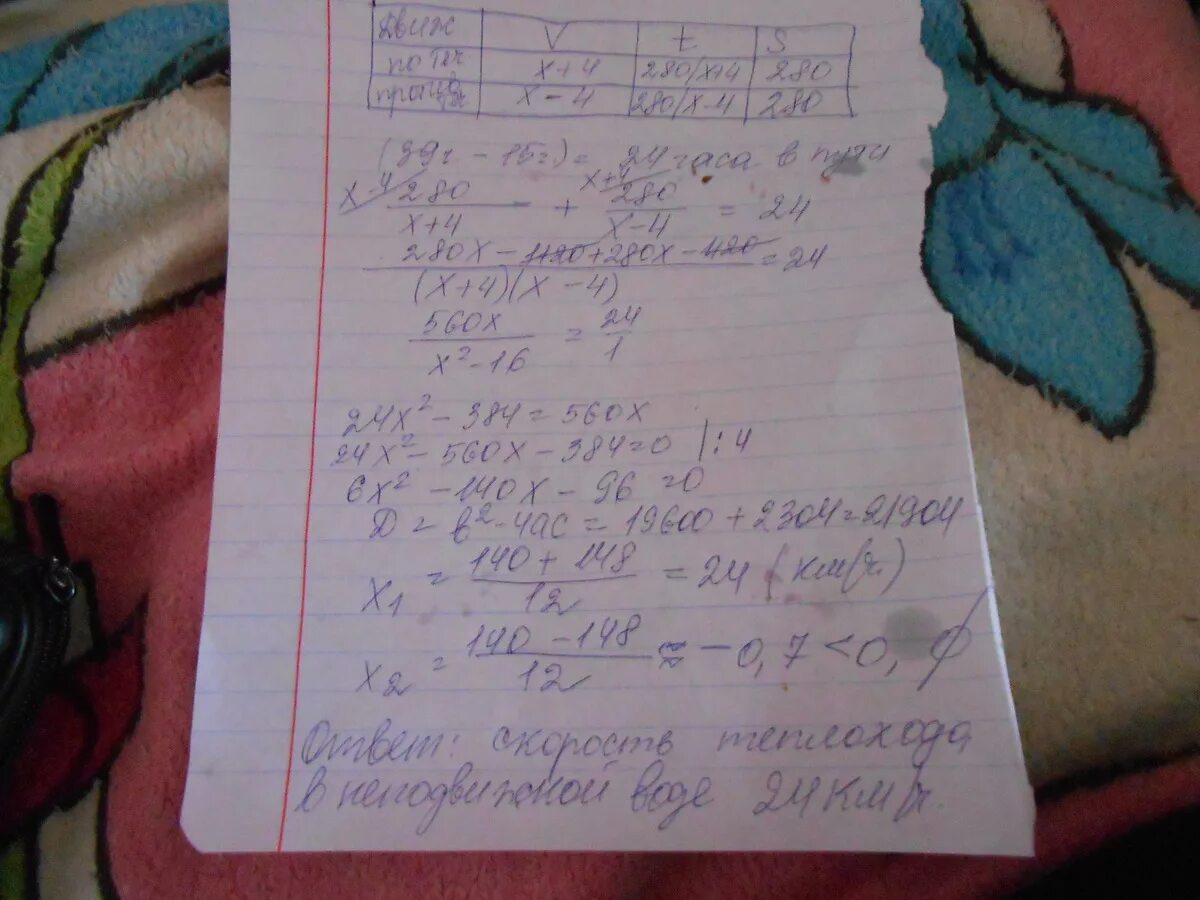 Движ V t S
по теч x+4 280/x+4 280
против теч x-4 280/x-4 280
(39ч - 15ч) = 24 часа в пути
x-4 280 / x+4 + x+4 280 / x-4 = 24
280x - 1120 + 280x - 420 / (x+4)(x-4) = 24
560x / x²-16 = 24 / 1
24x² - 384 = 560x
24x² - 560x - 384=0 |:4
6x² - 140x - 96 =0
D = b² - 4ac = 19600 + 2304 = 21904
x₁ = 140 + 148 / 12 = 24 (км/ч)
x₂ = 140 - 148 / 12 ≈ -0,7 < 0, ∅
Ответ: скорость теплохода
в неподвижной воде 24 км/ч.